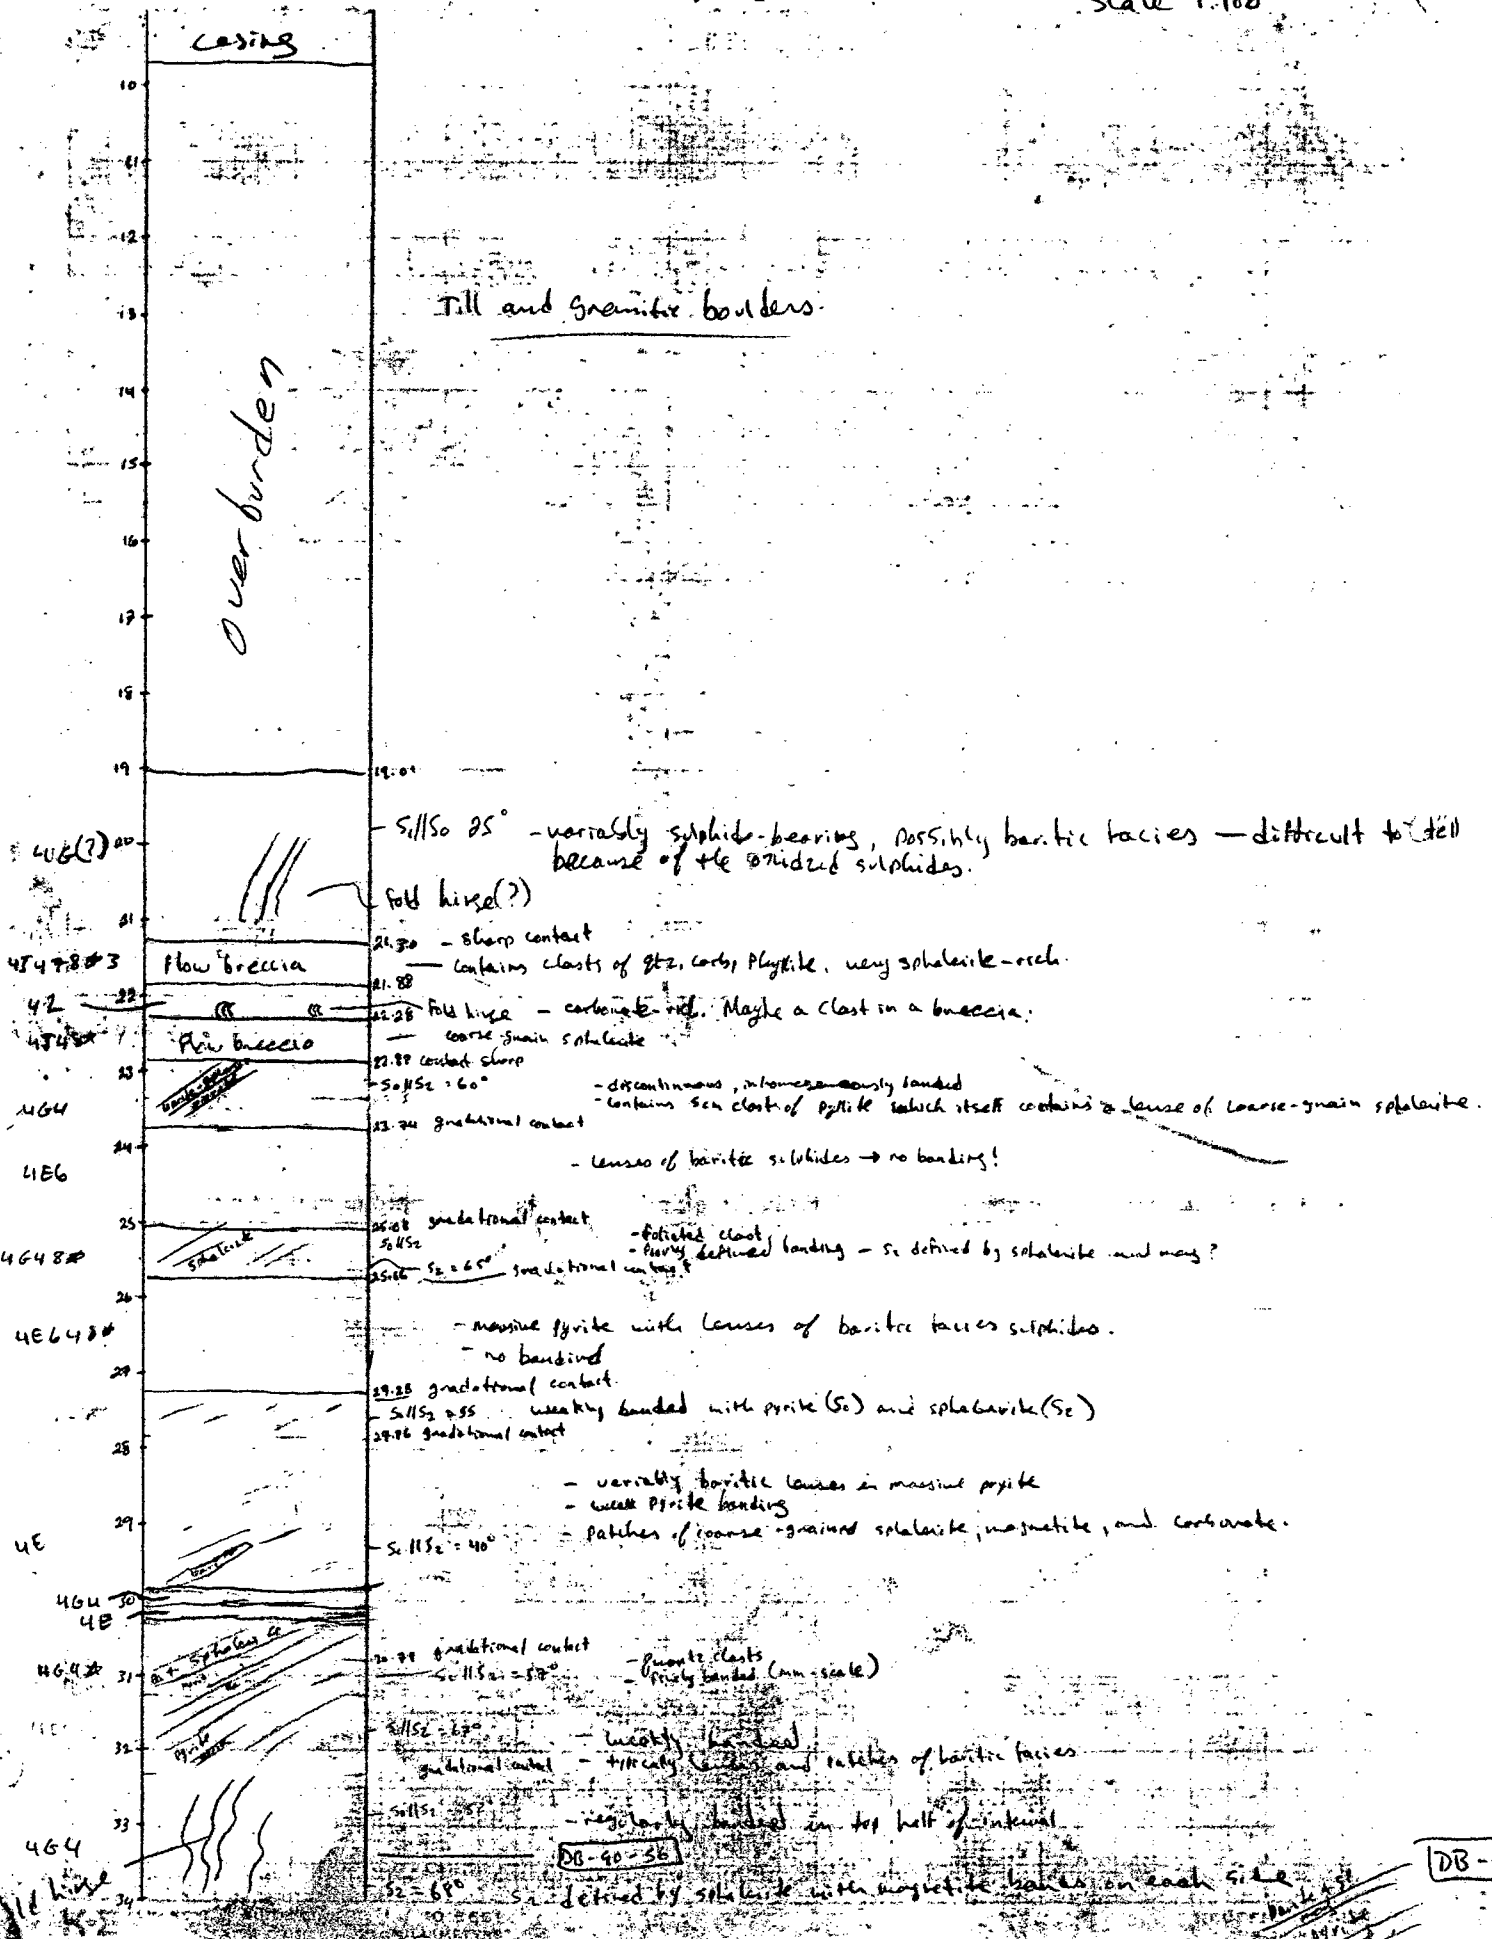 Scale 1:100
casing
10
11
12
13
Till and Granitic boulders.
14
Overburden
15
16
17
18
19
19.01
4UG(?) 20
S1//S0 25° - variably sulphide-bearing, possibly baritic facies — difficult to tell
because of the oxidized sulphides.
fold hinge(?)
21
21.30 - sharp contact
Flow breccia
contains clasts of qtz, carb, Phyllite, very sphalerite-rich.
21.88
42
22
22.28 Fold hinge - carbonate-rich. Maybe a clast in a breccia.
Flow breccia
coarse-grain sphalerite
22.88 contact sharp
23
S0//S2 = 60°
- discontinuous, inhomogeneously banded
4G4
- contains 5cm clast of pyllite which itself contains a lense of coarse-grain sphalerite.
23.74 gradational contact
24
4E6
- Lenses of baritic sulphides → no banding!
25
25.08 gradational contact
S0//S2
- foliated clast
4G48
sphalerite
- poorly defined banding - S2 defined by sphalerite and mag?
25.66 S2 = 65° gradational contact
26
4E648
- massive pyrite with lenses of baritic facies sulphides.
- no banding
27
gradational contact
S0//S2 = 55 weakly banded with pyrite (S0) and sphalerite (S2)
gradational contact
28
- variably baritic lenses in massive pryite
- weak pyrite banding
29
- patches of coarse-grained sphalerite, magnetite, and carbonate.
4E
S0//S2 = 40°
4G4 30
4E
gradational contact
- quartz clasts
4G4 31
S0//S2 = 57°
- finely banded (mm-scale)
S0//S2 = 67°
- weakly banded
32
pyrite
gradational contact
- typically lenses and patches of baritic facies
33
S0//S2
- regularly banded in top half of interval
4G4
DB-90-56
DB-
34
S2 = 69° S2 defined by sphalerite with magnetite bands on each side
hinge
pyrite